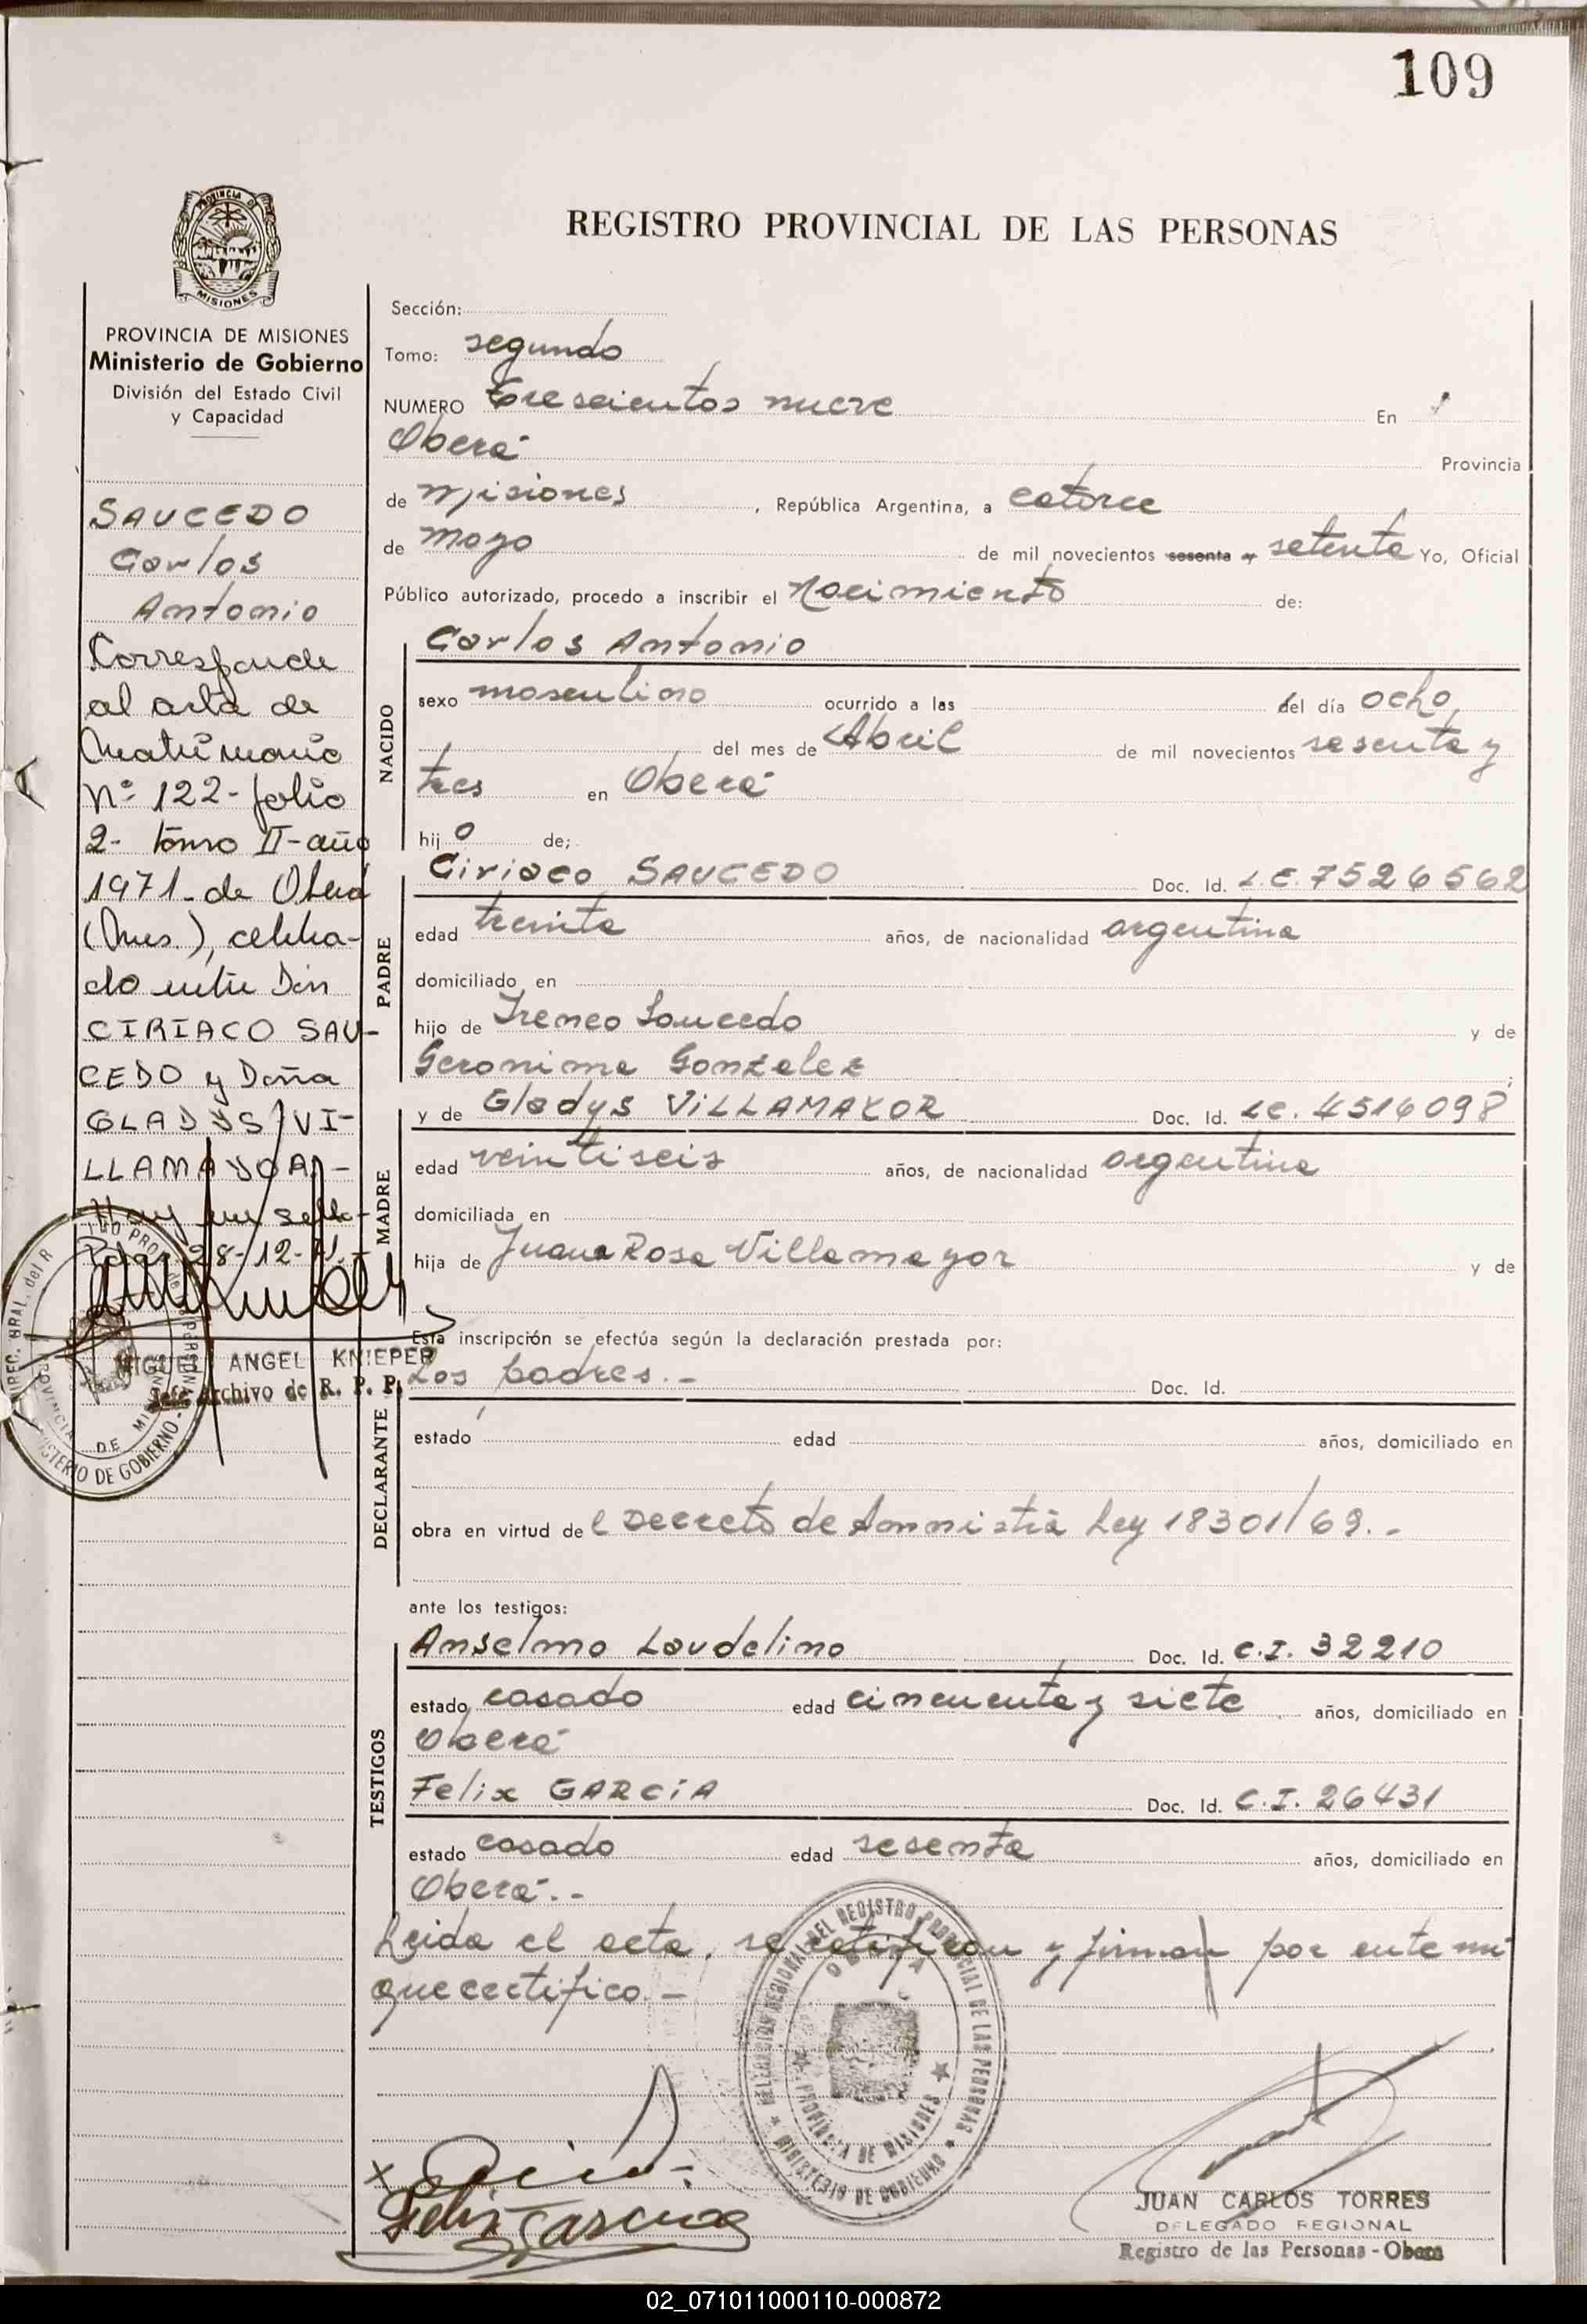 109
PROVINCIA DE
MISIONES
PROVINCIA DE MISIONES
Ministerio de Gobierno
División del Estado Civil
y Capacidad
SAUCEDO
Carlos
Antonio
Corresponde
al acta de
Matrimonio
Nº 122- folio
2- tomo II-año
1971- de Oberá
(Mnes.), celebra-
do entre Don
CIRIACO SAU-
CEDO y Doña
GLADYS VI-
LLAMAYOR-
Hay un sello-
28-12-71.-
MIGUEL ANGEL KNIEPER
Jefe Archivo de R. P. P.
REGISTRO PROVINCIAL DE LAS PERSONAS
Sección:
Tomo: segundo
NUMERO trescientos nueve En
Oberá Provincia
de Misiones, República Argentina, a catorce
de Mayo de mil novecientos sesenta y setenta Yo, Oficial
Público autorizado, procedo a inscribir el Nacimiento de:
NACIDO
Carlos Antonio
sexo masculino ocurrido a las del día ocho
del mes de Abril de mil novecientos sesenta y
tres en Oberá
hijo de;
PADRE
Ciriaco SAUCEDO Doc. Id. L.E. 7526562
edad treinta años, de nacionalidad argentina
domiciliado en
hijo de Ireneo Saucedo y de
Geronima Gonzalez
MADRE
y de Gladys VILLAMAYOR Doc. Id. LC. 4516098
edad veintiseis años, de nacionalidad argentina
domiciliada en
hija de Juana Rosa Villamayor y de
DECLARANTE
Esta inscripción se efectúa según la declaración prestada por:
Los padres.- Doc. Id.
estado edad años, domiciliado en
obra en virtud del Decreto de Amnistia Ley 18301/69.-
TESTIGOS
ante los testigos:
Anselmo Laudelino Doc. Id. C.I. 32210
estado casado edad cincuenta y siete años, domiciliado en
Oberá
Felix GARCiA Doc. Id. C.I. 26431
estado casado edad sesenta años, domiciliado en
Oberá.-
Leida el acta, se ratifican y firman por ante mi
que certifico.-
DELEGACION REGIONAL DEL REGISTRO PROVINCIAL DE LAS PERSONAS
OBERA
PROVINCIA DE MISIONES
MINISTERIO DE GOBIERNO
Felix Garcia
JUAN CARLOS TORRES
DELEGADO REGIONAL
Registro de las Personas - Obera
02_071011000110-000872